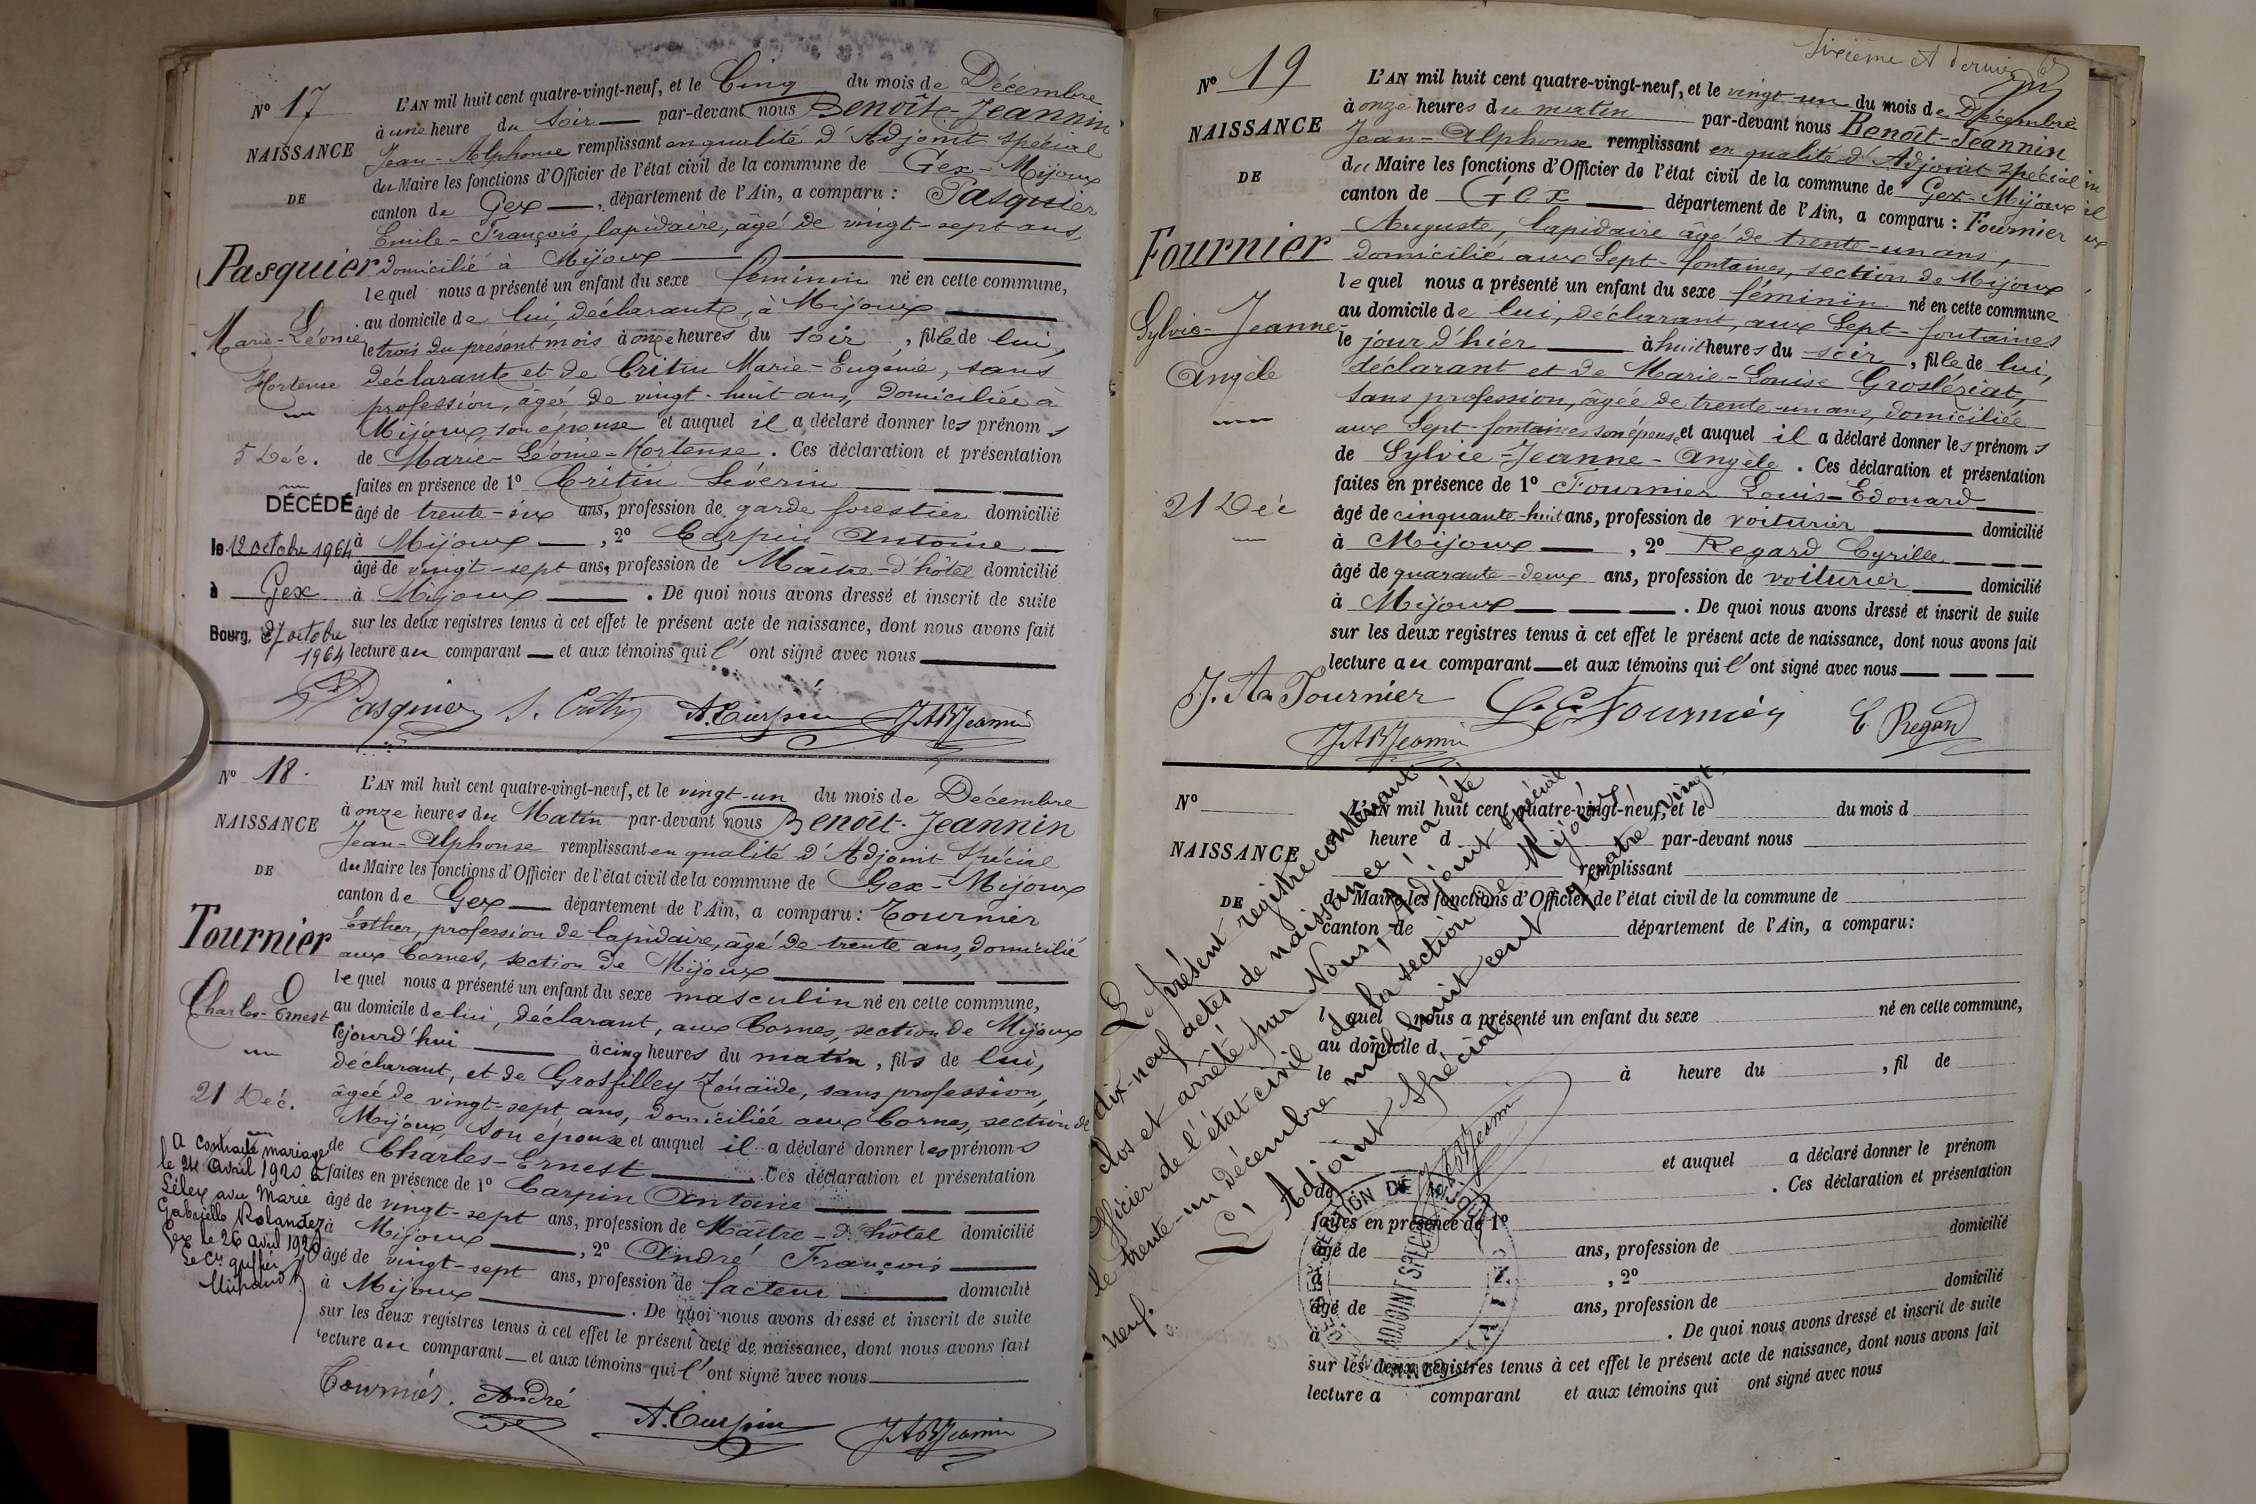 N° 17
NAISSANCE
DE
Pasquier
Marie-Léonie
Hortense
5 Déc.
DÉCÉDÉ
le 12 octobre 1964
à Gex
Bourg, 27 octobre
1964
L'AN mil huit cent quatre-vingt-neuf, et le Cinq du mois de Décembre
à une heure du Soir par-devant nous Benoît-Jeannin
Jean-Alphonse remplissant en qualité d'Adjoint spécial
du Maire les fonctions d'Officier de l'état civil de la commune de Gex-Mijoux
canton de Gex, département de l'Ain, a comparu : Pasquier
Emile-François, lapidaire, âgé de vingt-sept ans,
domicilié à Mijoux
lequel nous a présenté un enfant du sexe féminin né en cette commune,
au domicile de lui, déclarant, à Mijoux
le trois du présent mois à onze heures du soir, fille de lui,
déclarant et de Critin Marie-Eugénie, sans
profession, âgée de vingt-huit ans, domiciliée à
Mijoux, son épouse et auquel il a déclaré donner les prénoms
de Marie-Léonie-Hortense. Ces déclaration et présentation
faites en présence de 1° Critin Séverin
âgé de trente-six ans, profession de garde forestier domicilié
à Mijoux, 2° Carpin Antoine
âgé de vingt-sept ans, profession de Maître-d'hôtel domicilié
à Mijoux. De quoi nous avons dressé et inscrit de suite
sur les deux registres tenus à cet effet le présent acte de naissance, dont nous avons fait
lecture au comparant et aux témoins qui l'ont signé avec nous
Pasquier S. Critin A. Carpin JABJeannin
N° 18.
NAISSANCE
DE
Tournier
Charles-Ernest
21 Déc.
A contracté mariage
le 24 avril 1920 à
Lélex avec Marie
Gabrielle Rolandez
Gex le 26 avril 1920
Le Cis greffier
L'AN mil huit cent quatre-vingt-neuf, et le vingt-un du mois de Décembre
à onze heures du Matin par-devant nous Benoît-Jeannin
Jean-Alphonse remplissant en qualité d'Adjoint-Spécial
du Maire les fonctions d'Officier de l'état civil de la commune de Gex-Mijoux
canton de Gex département de l'Ain, a comparu : Tournier
Esther, profession de lapidaire, âgé de trente ans, domicilié
aux Cornes, section de Mijoux
lequel nous a présenté un enfant du sexe masculin né en cette commune,
au domicile de lui, déclarant, aux Cornes, section de Mijoux
lejourd'hui à cinq heures du matin, fils de lui,
déclarant, et de Grosfilley Zénaïde, sans profession,
âgée de vingt-sept ans, domiciliée aux Cornes, section de
Mijoux, son épouse et auquel il a déclaré donner les prénoms
de Charles-Ernest. Ces déclaration et présentation
faites en présence de 1° Carpin Antoine
âgé de vingt-sept ans, profession de Maître-d'hôtel domicilié
à Mijoux, 2° André François
âgé de vingt-sept ans, profession de facteur domicilié
à Mijoux. De quoi nous avons dressé et inscrit de suite
sur les deux registres tenus à cet effet le présent acte de naissance, dont nous avons fait
lecture au comparant et aux témoins qui l'ont signé avec nous
Tournier. André A. Carpin JABJeannin
Sixième et dernier
N° 19
NAISSANCE
DE
Fournier
Sylvie-Jeanne-
Angèle
21 Déc
L'AN mil huit cent quatre-vingt-neuf, et le vingt-un du mois de Décembre
à onze heures du matin par-devant nous Benoît-Jeannin
Jean-Alphonse remplissant en qualité d'Adjoint spécial
du Maire les fonctions d'Officier de l'état civil de la commune de Gex-Mijoux
canton de Gex département de l'Ain, a comparu : Fournier
Auguste, lapidaire âgé de trente-un ans,
domicilié aux Sept-fontaines, section de Mijoux
lequel nous a présenté un enfant du sexe féminin né en cette commune
au domicile de lui, déclarant, aux Sept-fontaines
le jour d'hier à huit heures du soir, fille de lui,
déclarant et de Marie-Louise Grosléziat,
sans profession, âgée de trente-un ans, domiciliée
aux Sept-fontaines, son épouse, et auquel il a déclaré donner les prénoms
de Sylvie-Jeanne-Angèle. Ces déclaration et présentation
faites en présence de 1° Fournier Louis-Edouard
âgé de cinquante-huit ans, profession de voiturier domicilié
à Mijoux, 2° Regard Cyrille
âgé de quarante-deux ans, profession de voiturier domicilié
à Mijoux. De quoi nous avons dressé et inscrit de suite
sur les deux registres tenus à cet effet le présent acte de naissance, dont nous avons fait
lecture au comparant et aux témoins qui l'ont signé avec nous
J. A. Fournier L. E. Fournier C Regard
JABJeannin
N°
NAISSANCE
DE
L'AN mil huit cent quatre-vingt-neuf, et le du mois d
heure d par-devant nous
remplissant
d Maire les fonctions d'Officier de l'état civil de la commune de
canton de département de l'Ain, a comparu :
l quel nous a présenté un enfant du sexe né en cette commune,
au domicile d
le à heure du , fil de
et auquel a déclaré donner le prénom
de . Ces déclaration et présentation
faites en présence de 1°
âgé de ans, profession de domicilié
à , 2°
âgé de ans, profession de domicilié
à . De quoi nous avons dressé et inscrit de suite
sur les deux registres tenus à cet effet le présent acte de naissance, dont nous avons fait
lecture a comparant et aux témoins qui ont signé avec nous
Le présent registre contenant
dix-neuf actes de naissance a été
clos et arrêté par Nous, Adjoint spécial
officier de l'état civil de la section de Mijoux,
le trente-un décembre mil huit cent quatre vingt-
neuf.
L'Adjoint Spécial,
JABJeannin
SECTION DE
ADJOINT SPÉCIAL
AIN